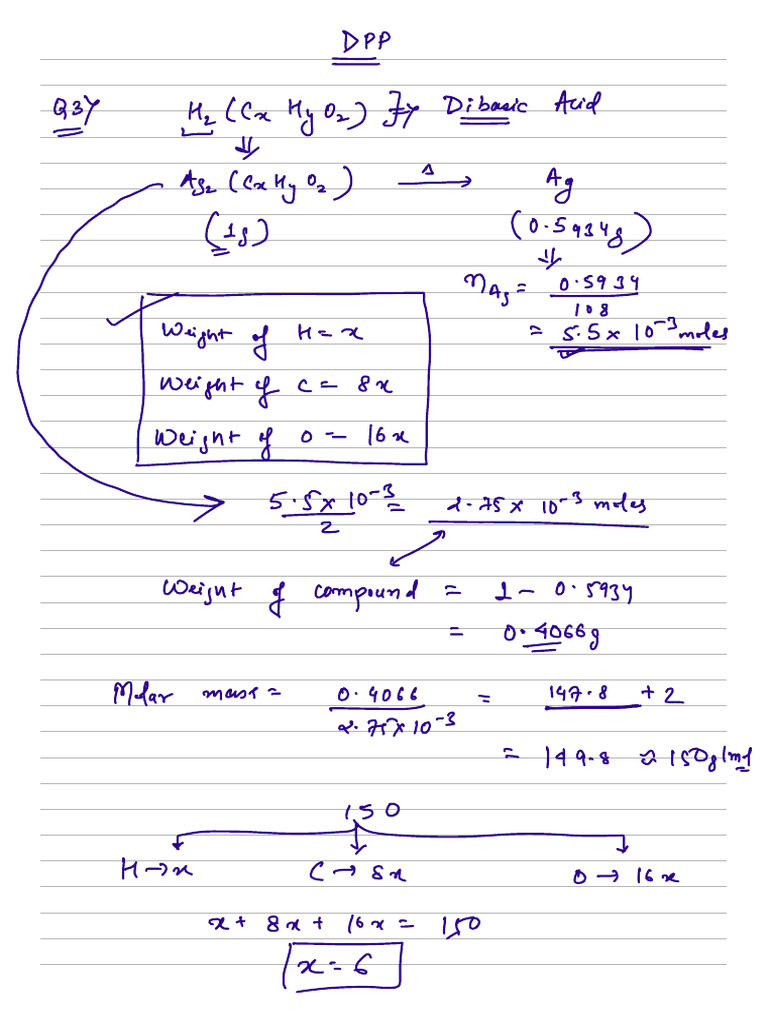 DPP
Q3Y H₂ (Cx Hy O₂) }→ Dibasic Acid
⇓
Ag₂ (Cx Hy O₂) —Δ→ Ag
(1g) (0.5934g)
⇓
nAg = 0.5934/108
= 5.5 x 10⁻³ moles
Weight of H = x
Weight of C = 8x
Weight of O = 16x
5.5 x 10⁻³/2 = 2.75 x 10⁻³ moles
Weight of compound = 1 - 0.5934
= 0.4066g
Molar mass = 0.4066/2.75x10⁻³ = 147.8 + 2
= 149.8 ≈ 150g/mol
150
H → x C → 8x O → 16x
x + 8x + 16x = 150
x = 6